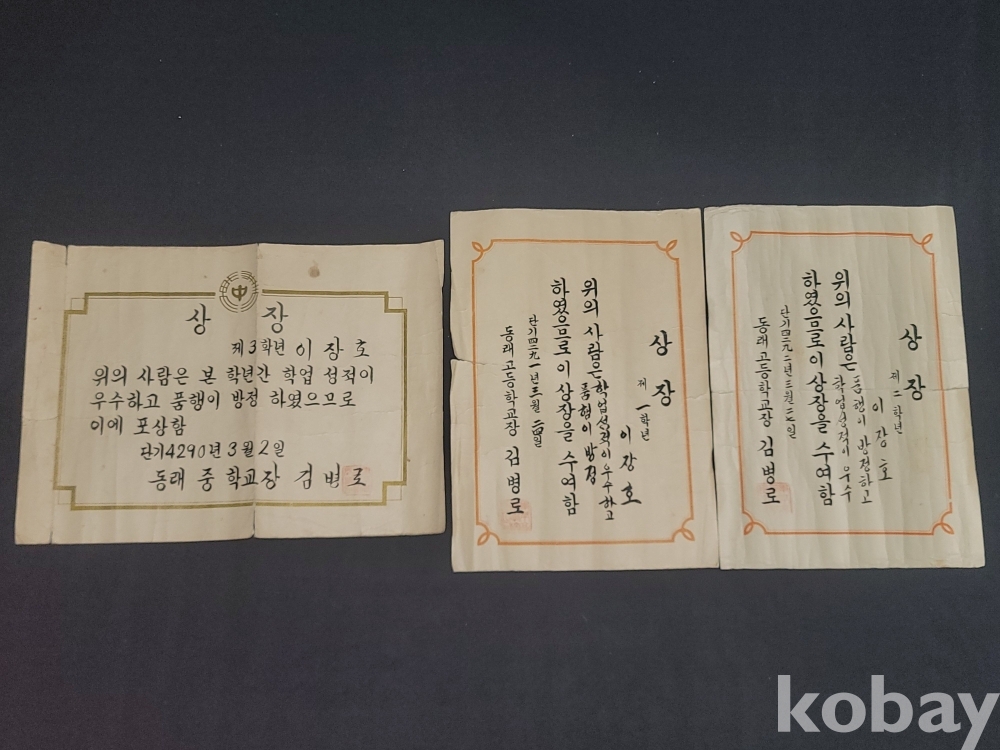 中
상 장
제3학년 이 장 호
위의 사람은 본 학년간 학업 성적이
우수하고 품행이 방정 하였으므로
이에 포상함
단기4290년 3월 2일
동래 중 학교장 김 병 로
상 장
제 一학년
이 장 호
위의 사람은 학업성적이 우수하고
품행이 방정
하였으므로 이 상장을 수여함
단기四二九一년 三월 二四일
동래고등학교장 김 병 로
상 장
제 二학년
이 장 호
위의 사람은 품행이 방정하고
학업성적이 우수
하였으므로 이 상장을 수여함
단기四二九二년 三월 二七일
동래고등학교장 김 병 로
kobay